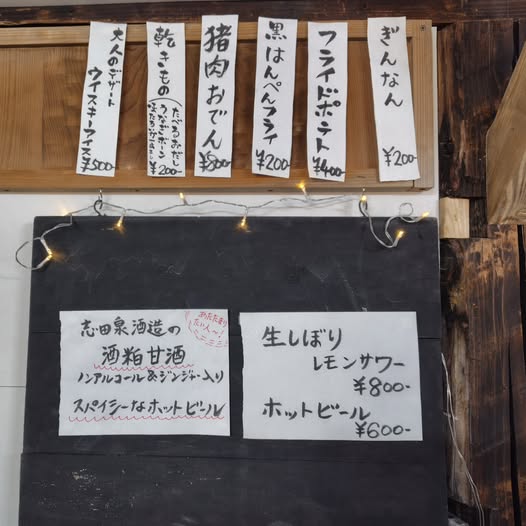 ぎんなん
¥200-
フライドポテト
¥400-
黒はんぺんフライ
¥200-
猪肉おでん
¥800-
乾きもの
たべるおだし
うなぎボーン
¥200-
大人のデザート
ウイスキーアイス
¥500-
志田泉酒造の
酒粕甘酒
ノンアルコール&ジンジャー入り
スパイシーなホットビール
あたたまり
たい人へ!
生しぼり
レモンサワー
¥800-
ホットビール
¥600-